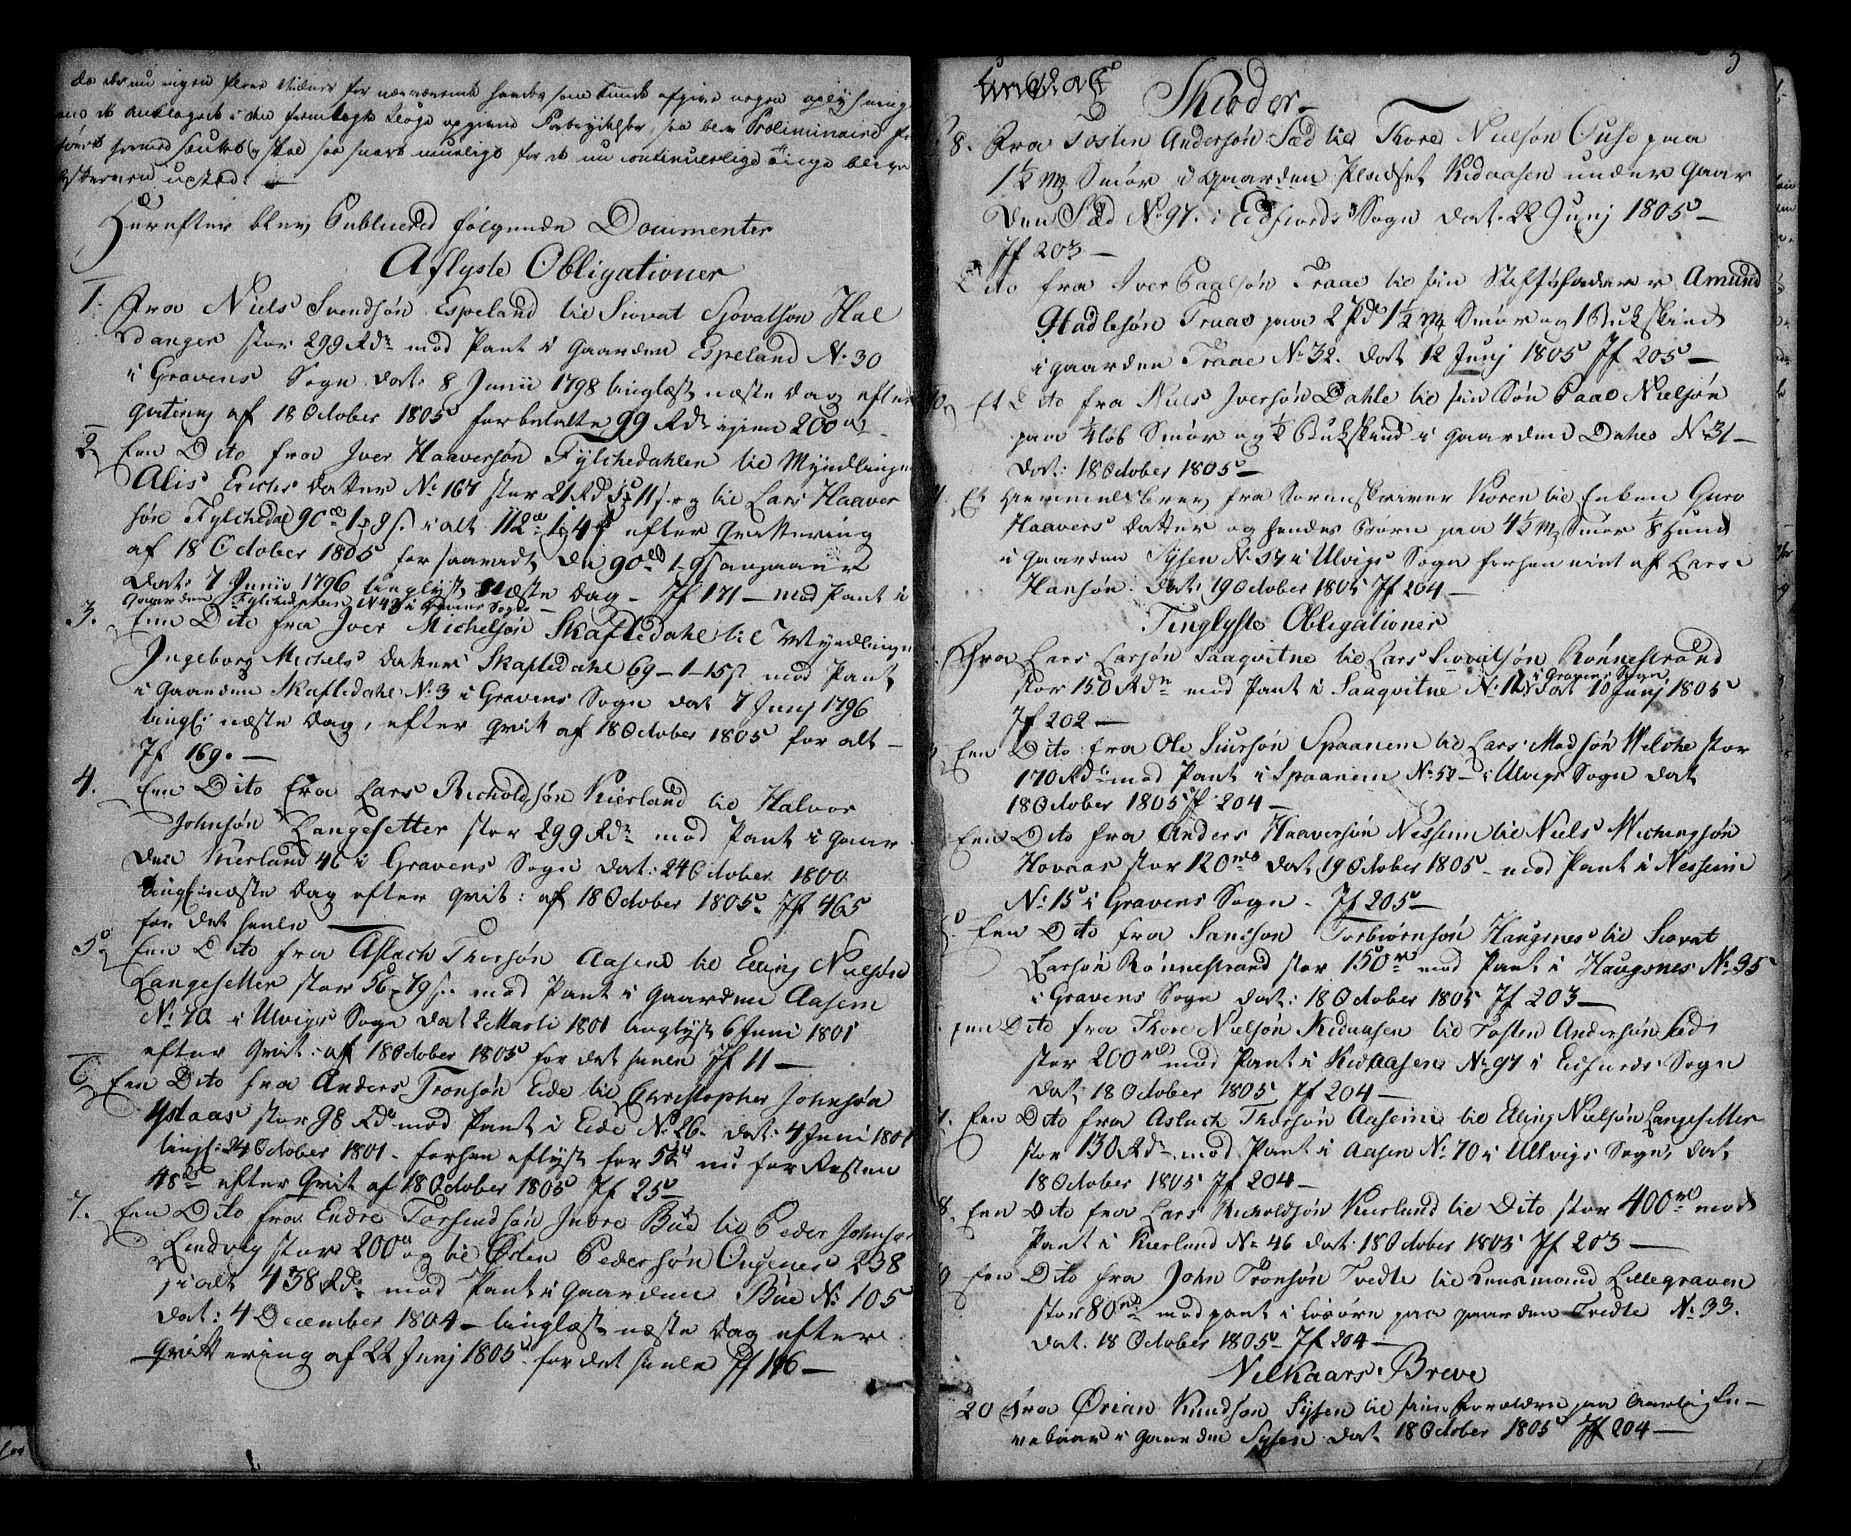 da der nu ingen flere Vidner for nærværende havdes som kunde afgive nogen oplysning
Herefter blev Publicered følgende Documenter
Aflyste Obligationer
1. Fra Niels Svendsøn Espeland til Siovat Siovatsøn Hal
danger stor 299 Rdr med Pant i Gaarden Espeland No 30
i Gravens Sogn dat: 8 Junii 1798 tinglæst næste Dag efter
qvitering af 18 October 1805 for betalte 99 Rdr igien 200 rd
2. Een Dito fra Iver Haaversøn Fylchedahlen til Myndlingen
Alis Erichs Datter No 167 stor 21 Rd 11 s og til Lars Haaver
søn Fylchedal 90 rd 1 9 s i alt 112 rd 1 4 s efter Qvittering
af 18 October 1805 for saavidt de 90 rd 1-9 s angaaer
Dat: 7 Junii 1796 tinglyst næste Dag - Jf 171 - med Pant i
Gaarden Fylchedahlen No 43 i Gravens Sogn -
3. Een Dito fra Iver Michelsøn Skafledahl til Myndlingen
Ingeborg Michels Datter Skafledahl 69-1-15 s med Pant
i Gaarden Skafledahl No 3 i Gravens Sogn dat 7 Junj 1796
tingl: næste Dag, efter qvitt af 18 October 1805 for alt -
Jf 169. -
4. Een Dito Fra Lars Richoldsøn Kierland til Halvor
Johnsøn Langesetter stor 299 Rdr med Pant i Gaar
den Kierland 46 i Gravens Sogn dat: 24 October 1800
tingl: næste Dag efter qvit: af 18 October 1805 Jf 465
for det heele -
5. Een Dito fra Aslach Thorsøn Aasen til Elling Nielsøn
Langesetter stor 56-79 s med Pant i Gaarden Aasen
No 70 i Ulvigs Sogn dat 2 Marti 1801 tinglyst 6 Juni 1801
efter qvit: af 18 October 1805 for det heele Jf 11 -
6. Een Dito fra Anders Tronsøn Eide til Christopher Johnsøn
Ystaas stor 98 Rdr med Pant i Eide No 26. dat: 4 Juni 1801
tingl: 24 October 1801 - forhen aflyst for 50 rd nu for Resten
48 rd efter Qvit af 18 October 1805 Jf 25 -
7. Een Dito fra Endre Torsendsøn Indre Bue til Peder Johnsøn
Lindvig stor 200 rd og til Østen Pedersøn Ougnes 238
i alt 438 Rdr med Pant i Gaarden Bue No 105
dat: 4 December 1804 - tinglæst næste Dag efter
qvittering af 22 Junj 1805 for det heele Jf 146 -
5
Skiøder -
8. Fra Tosten Andersøn Sæd til Thore Nielsøn Ouse paa
1½ M Smør i Gaarden Pladset Kidaasen under Gaar
den Sæd No 97. i Eidfiords Sogn dat. 22 Junj 1805 -
Jf 203 -
Dito fra Iver Paalsøn Traae til sin Stiffader Amund
Hadlesøn Traae paa 2 Pd 1½ M Smør og 1 Bukskind
i gaarden Traae No 32. dat 12 Junj 1805 Jf 205 -
10. Et Dito fra Niels Iversøn Dahle til sin Søn Paal Nielsøn
paa ¼ løb Smør og ½ Bukskind i gaarden Dahle No 31 -
Dat: 18 October 1805 -
Et Hiemmelsbrev fra Sorenskriver Koren til Enken Guro
Haavers Datter og hendes Børn paa 4½ M Smør ⅛ Hund
i gaarden Sysen No 54 i Ulvigs Sogn forhen eiet af Lars
Hansøn. dat: 19 October 1805 Jf 204 -
Tinglyste Obligationer
Fra Lars Larsøn Saaqvitne til Lars Siovatsøn Rønnestrand
stor 150 Rdr med Pant i Saaqvitne No 12 i Gravens Sogn Dat 10 Junj 1805
Jf 202 -
Een Dito fra Ole Siursøn Spaanem til Lars Madsøn Welche stor
170 Rdr med Pant i Spaanem No 52 - i Ulvigs Sogn dat
18 October 1805 Jf 204 -
Een Dito fra Anders Haaversøn Nesheim til Niels Michingsøn
Hovaas stor 120 rd dat 19 October 1805 - med Pant i Nesheim
No 15 i Gravens Sogn - Jf 205 -
Een Dito fra Samson Torbiørnsøn Haugsnes til Siovat
Larsøn Rønnestrand stor 150 rd med Pant i Haugsnes No 95
i Gravens Sogn dat: 18 October 1805 Jf 203 -
Een Dito fra Thore Nielsøn Kidaasen til Tosten Andersøn Sæd
stor 200 rd med Pant i Kidaasen No 97 i Eidfiords Sogn
Dat: 18 October 1805 Jf 204 -
7. Een Dito fra Aslach Thorsøn Aaseim til Elling Nielsøn Langesetter
stor 130 Rdr med Pant i Aasen No 70 i Ulvigs Sogn, dat,
18 October 1805 Jf 204 -
8. Een Dito fra Lars Richoldsøn Kierland til Dito stor 400 rd med
Pant i Kierland No 46 dat: 18 October 1805 Jf 203 -
9 Een Dito fra John Tronsøn Tvedte til Lensmand Lillegraven
stor 80 rd med pant i Løsøre paa gaarden Tvedte No 33.
dat. 18 October 1805 Jf 204 -
Vilkaars Breve
20 Fra Ørian Knudsøn Sysen til sine Forældre paa Aarlig
i gaarden Sysen dat. 18 October 1805 Jf 204 -